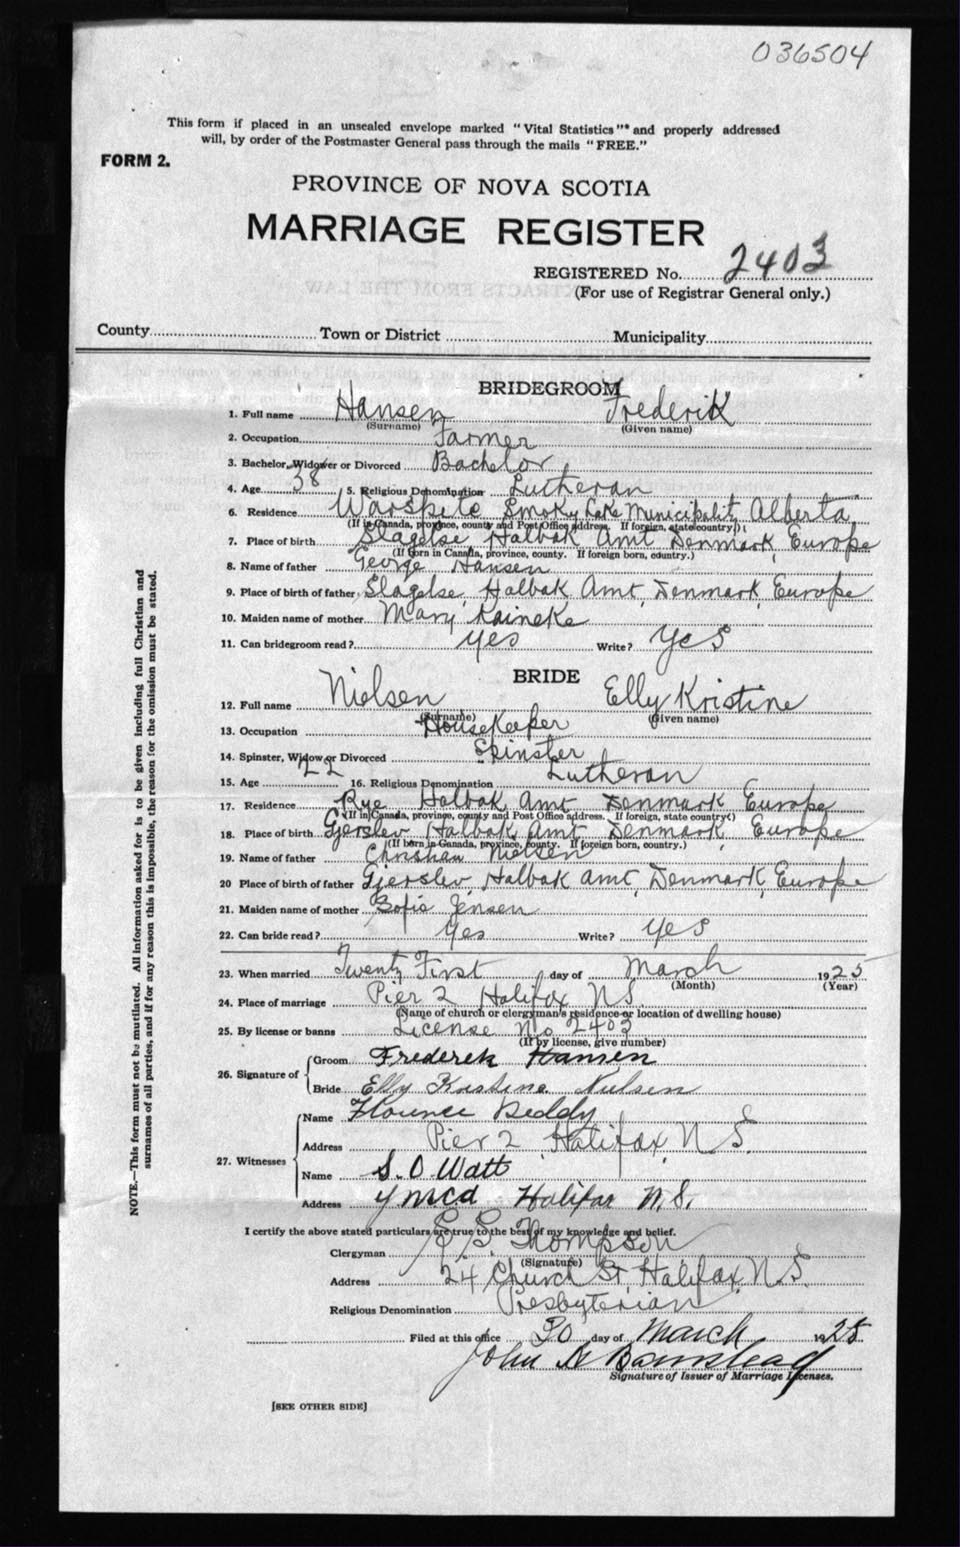 036504
This form if placed in an unsealed envelope marked "Vital Statistics" and properly addressed
will, by order of the Postmaster General pass through the mails "FREE."
FORM 2.
PROVINCE OF NOVA SCOTIA
MARRIAGE REGISTER
REGISTERED No. 2403
(For use of Registrar General only.)
County Town or District Municipality
BRIDEGROOM
1. Full name Hansen Frederik
(Surname) (Given name)
2. Occupation Farmer
3. Bachelor, Widower or Divorced Bachelor
4. Age 38 5. Religious Denomination Lutheran
6. Residence Warspite Smoky Lake Municipality Alberta
(If in Canada, province, county and Post Office address. If foreign, state country.)
7. Place of birth Slagelse Halbak Amt Denmark, Europe
(If born in Canada, province, county. If foreign born, country.)
8. Name of father George Hansen
9. Place of birth of father Slagelse, Halbak Amt, Denmark, Europe
10. Maiden name of mother Mary Kaineke
11. Can bridegroom read? Yes Write? Yes
BRIDE
12. Full name Nielsen Elly Kristine
(Surname) (Given name)
13. Occupation HouseKeeper
14. Spinster, Widow or Divorced Spinster
15. Age 22 16. Religious Denomination Lutheran
17. Residence Rye Halbak Amt Denmark Europe
(If in Canada, province, county and Post Office address. If foreign, state country)
18. Place of birth Gjerslev Halbak Amt Denmark, Europe
(If born in Canada, province, county. If foreign born, country.)
19. Name of father Christian Nielsen
20 Place of birth of father Gjerslev, Halbak Amt, Denmark, Europe
21. Maiden name of mother Sofie Jensen
22. Can bride read? Yes Write? Yes
23. When married Twenty First day of March 1925
(Month) (Year)
24. Place of marriage Pier 2 Halifax N.S.
(Name of church or clergyman's residence or location of dwelling house)
25. By license or banns License No 2403
(If by license, give number)
26. Signature of Groom Frederik Hansen
Bride Elly Kristine Nielsen
27. Witnesses Name Florence Beddy
Address Pier 2 Halifax, N.S.
Name S. O. Watt
Address Y M C A Halifax N.S.
I certify the above stated particulars are true to the best of my knowledge and belief.
Clergyman Thompson
(Signature)
Address 24 Church St, Halifax, N.S.
Religious Denomination Presbyterian
Filed at this office 30 day of March 1925
John A Barnstead
Signature of Issuer of Marriage Licenses.
[SEE OTHER SIDE]
NOTE.—This form must not be mutilated. All information asked for is to be given including full Christian and
surnames of all parties, and if for any reason this is impossible, the reason for the omission must be stated.